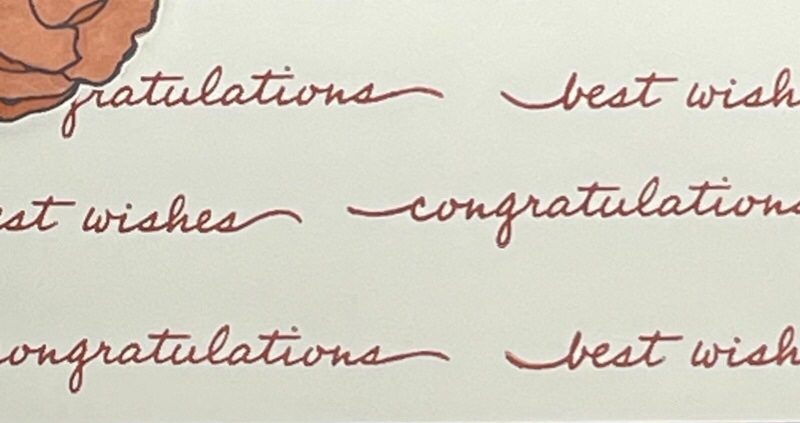 gratulations best wish
est wishes congratulations
ongratulations best wish